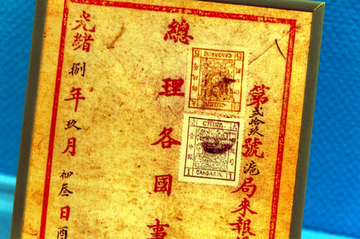 第貳拾玖號滬局來報
總理各國事
光緒捌年玖月初叁日酉
CHINA
CANDARIN